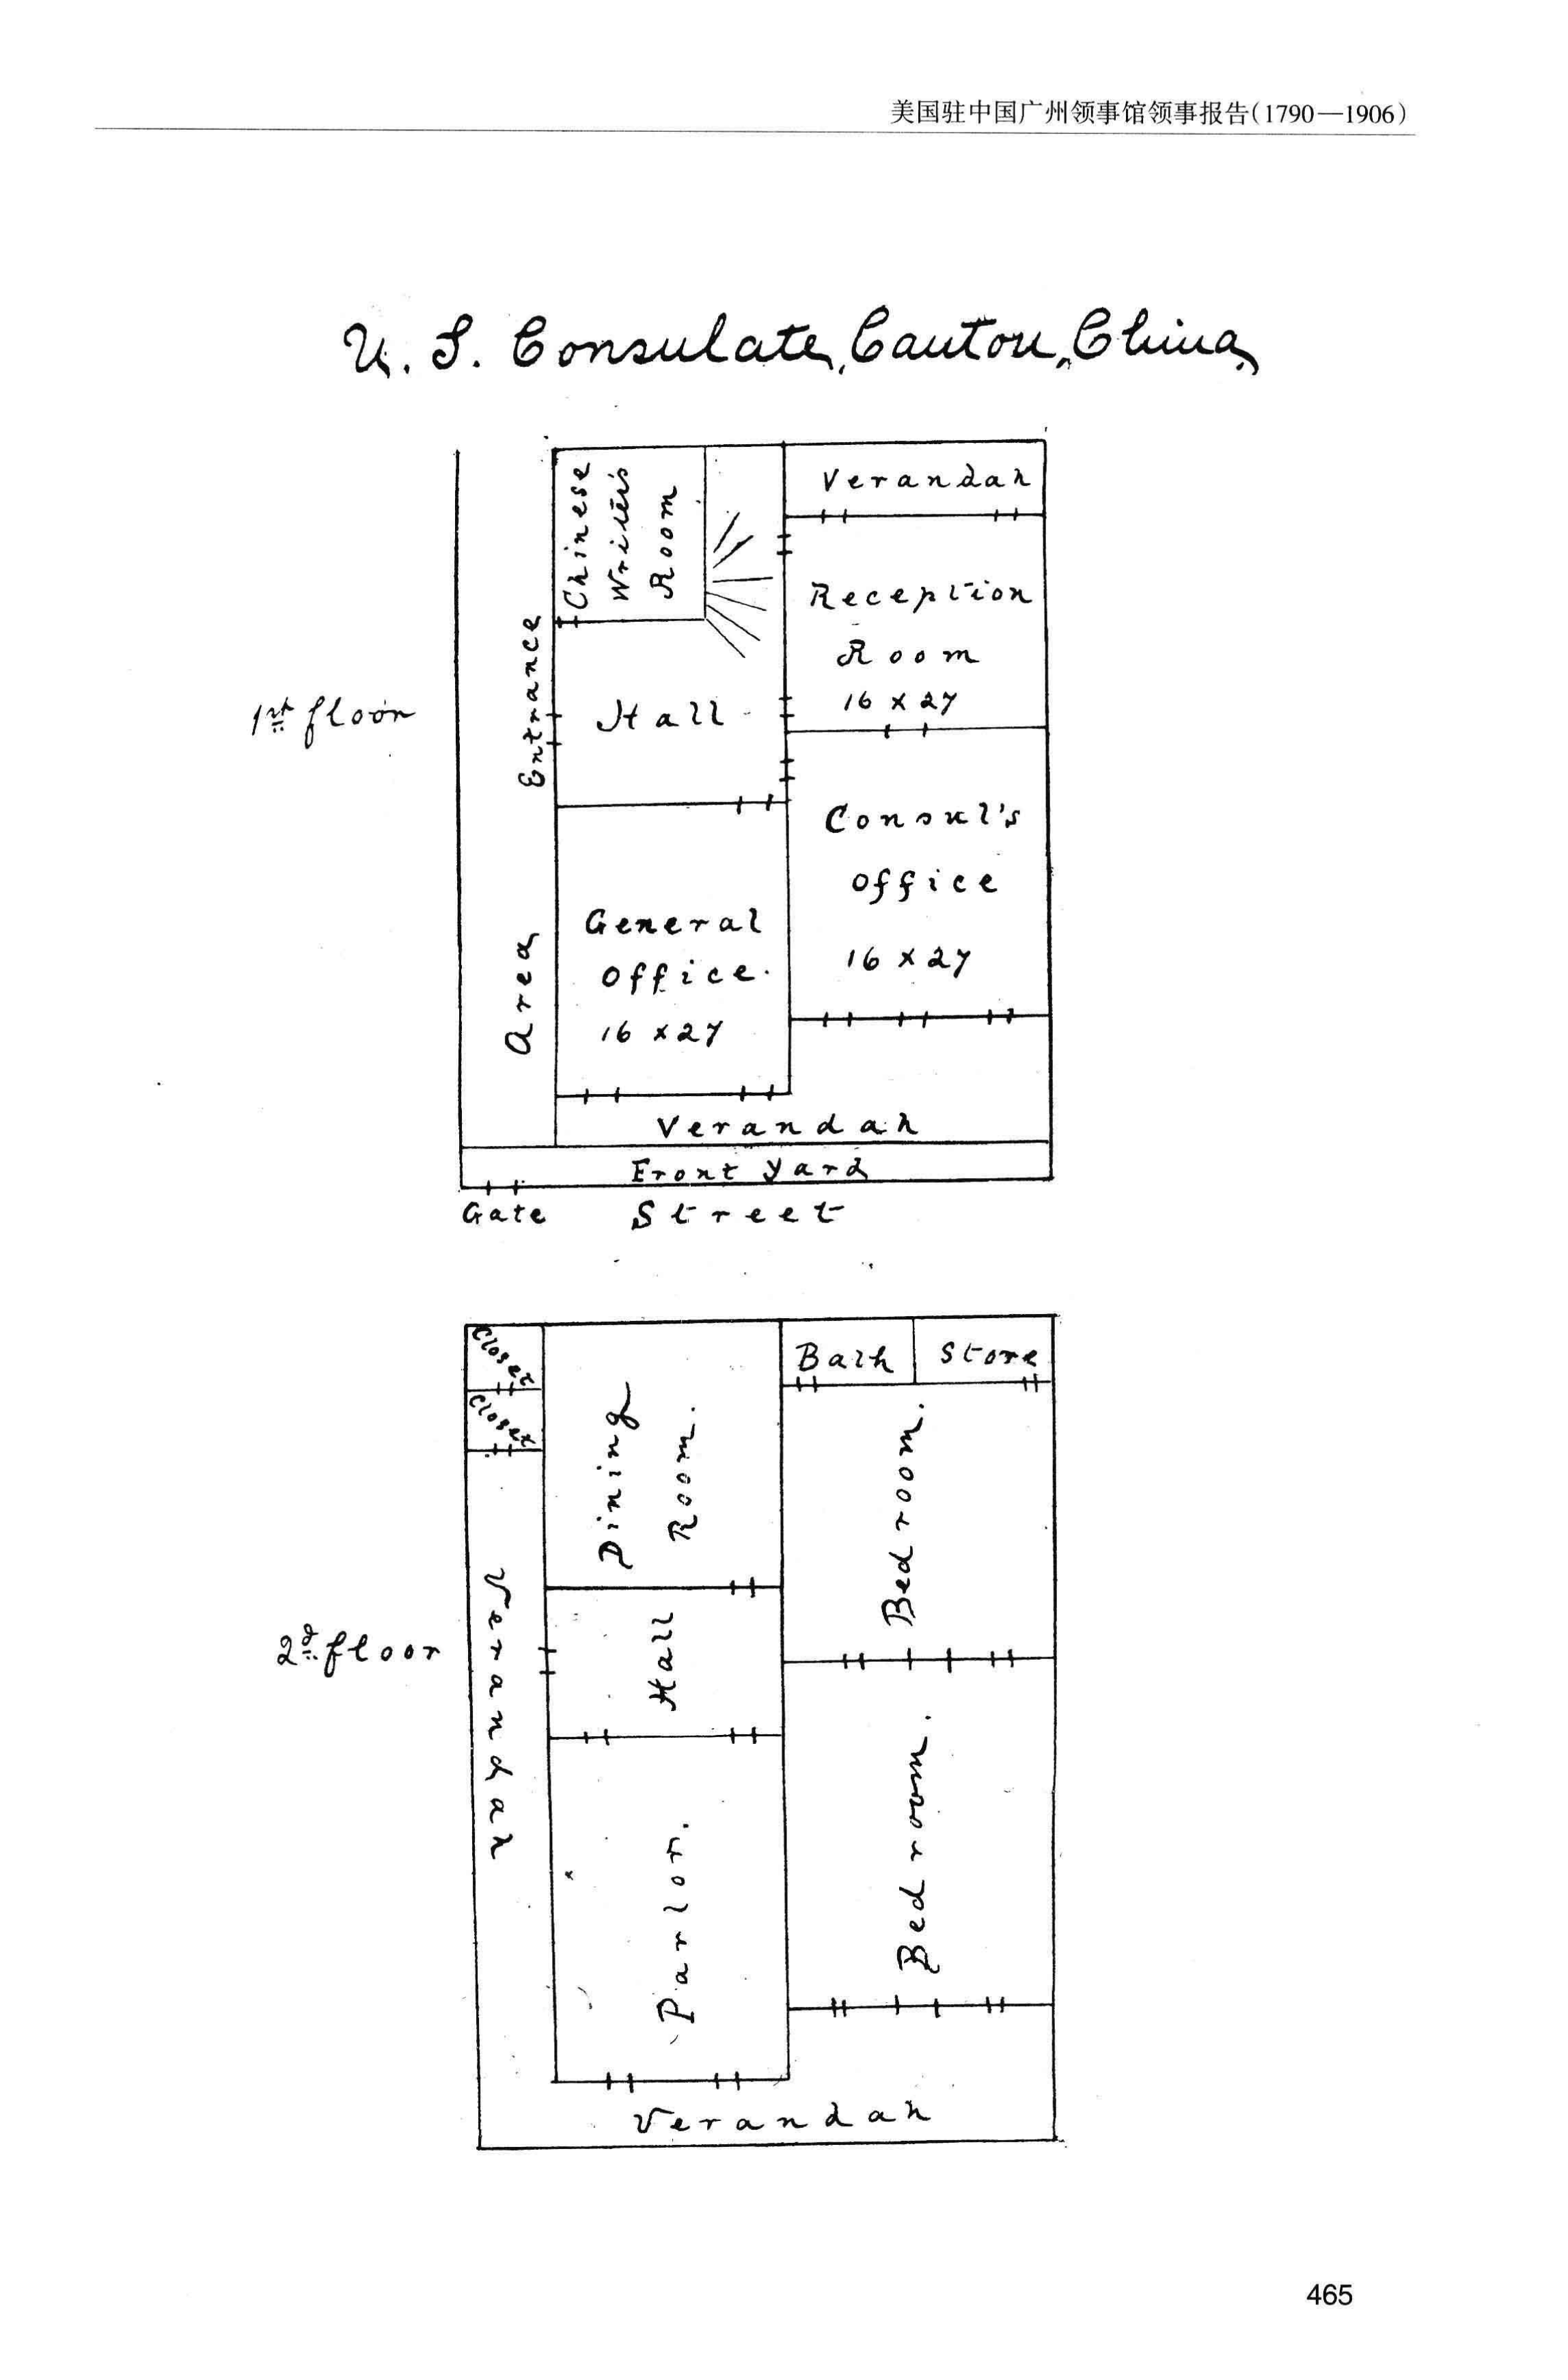 美国驻中国广州领事馆领事报告(1790—1906)
U. S. Consulate, Canton, China,
1st floor
Chinese
Writer's
Room
Verandah
Reception
Room
16 x 27
Entrance
Hall
Consul's
office
16 x 27
Area
General
Office.
16 x 27
Verandah
Front Yard
Gate
Street
2d floor
Closet
Closet
Dining
Room.
Bath
Store
Bedroom.
Verandah
Hall
Parlor.
Bedroom.
Verandah
465